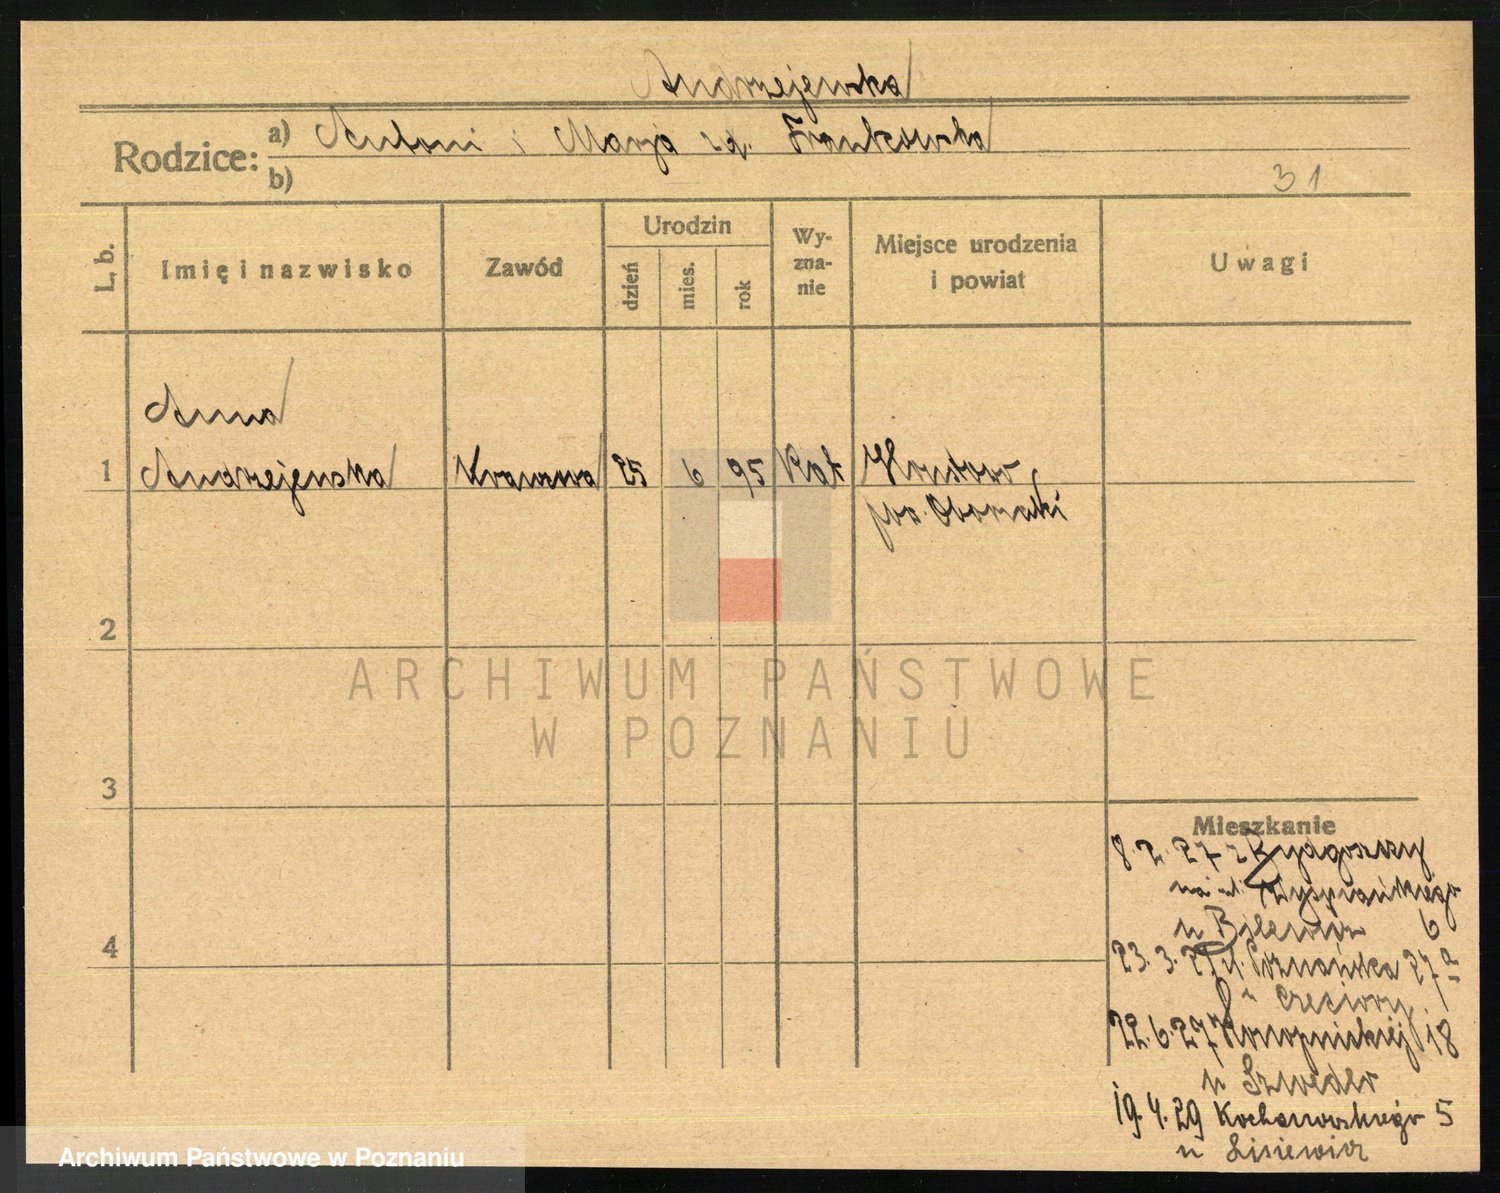 Andrzejewska
Rodzice: a) Antoni i Marja zd. Frankowska
b)
31
L. b.
Imię i nazwisko
Zawód
Urodzin
dzień
mies.
rok
Wy-
zna-
nie
Miejsce urodzenia
i powiat
Uwagi
Anna
1 Andrzejewska Krawcowa 25 6 95 Kat
pow. Obornicki
2
3
4
ARCHIWUM PAŃSTWOWE
W POZNANIU
Mieszkanie
8.2.27 z Bydgoszczy
na ul. Wyspiańskiego
u 6
23.3.27 ul. Poznańska 27a
u
22.6.27 Konopnickiej 18
u Szwedler
19.4.29 Kochanowskiego 5
u Lisiewicz
Archiwum Państwowe w Poznaniu